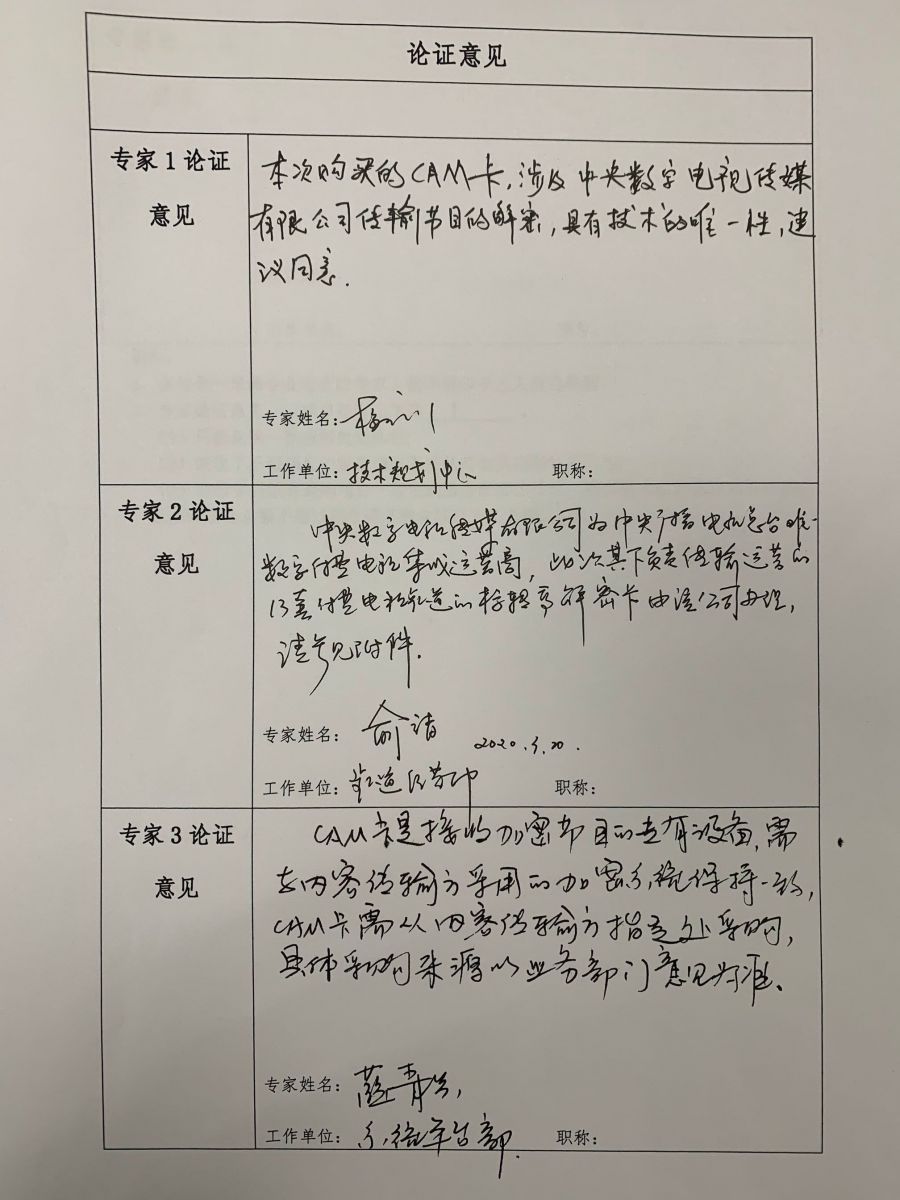 论证意见
专家1论证
意见
本次购买的CAM卡,涉及中央数字电视传媒
有限公司传输节目的解密,具有技术的唯一性,建
议同意.
专家姓名:
工作单位:技术规划中心 职称:
专家2论证
意见
中央数字电视传媒有限公司为中央广播电视总台唯一
数字付费电视集成运营商,此次其下负责传输运营的
13套付费电视频道的标转高解密卡由该公司办理,
请参见附件.
专家姓名:俞洁 2020.5.20.
工作单位:频道经营中 职称:
专家3论证
意见
CAM卡是接收加密节目的专有设备,需
与内容传输方采用的加密系统保持一致,
CAM卡需从内容传输方指定处采购,
具体采购来源以业务部门意见为准、
专家姓名:
工作单位:系统平台部. 职称: